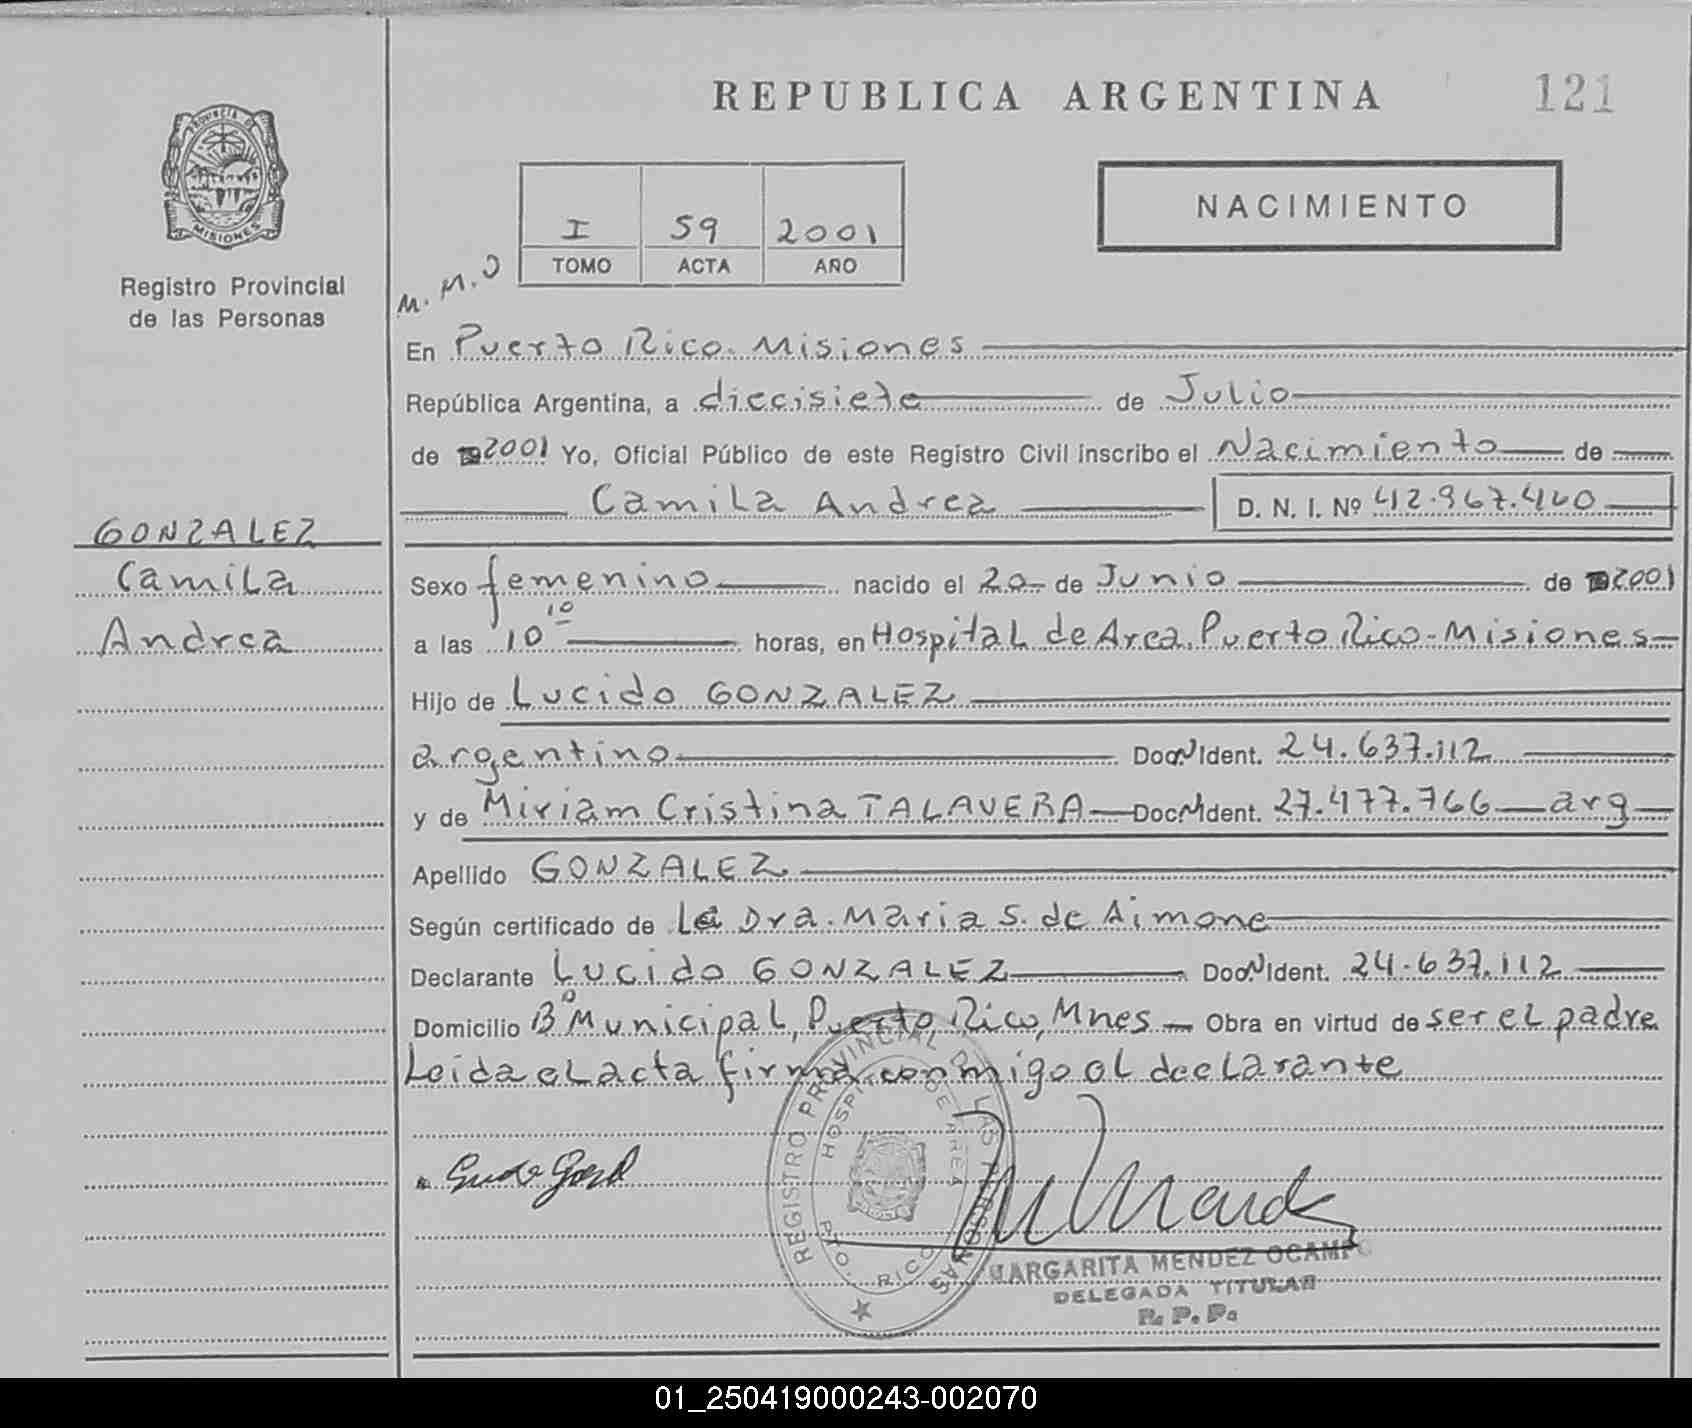 REPUBLICA ARGENTINA
121
PROVINCIA DE MISIONES
Registro Provincial
de las Personas
NACIMIENTO
I 59 2001
TOMO ACTA AÑO
M. M. O
En Puerto Rico. Misiones
República Argentina, a diecisiete de Julio
de 2001 Yo, Oficial Público de este Registro Civil inscribo el Nacimiento de
Camila Andrea D. N. I. Nº 42.967.460
GONZALEZ
Camila
Andrea
Sexo femenino nacido el 20 de Junio de 2001
a las 10 10 horas, en Hospital de Area. Puerto Rico-Misiones
Hijo de Lucido GONZALEZ
argentino Doc.N Ident. 24.637.112
y de Miriam Cristina TALAVERA Doc.N Ident. 27.477.766 arg
Apellido GONZALEZ
Según certificado de La Dra. Maria S. de Aimone
Declarante Lucido GONZALEZ Doc.N Ident. 24.637.112
Domicilio Bº Municipal, Puerto Rico, Mnes Obra en virtud de ser el padre
Leida el acta firma conmigo el declarante
REGISTRO PROVINCIAL DE LAS PERSONAS
HOSPITAL DE AREA
PTO. RICO
MARGARITA MENDEZ OCAMPO
DELEGADA TITULAR
R. P. P.
01_250419000243-002070